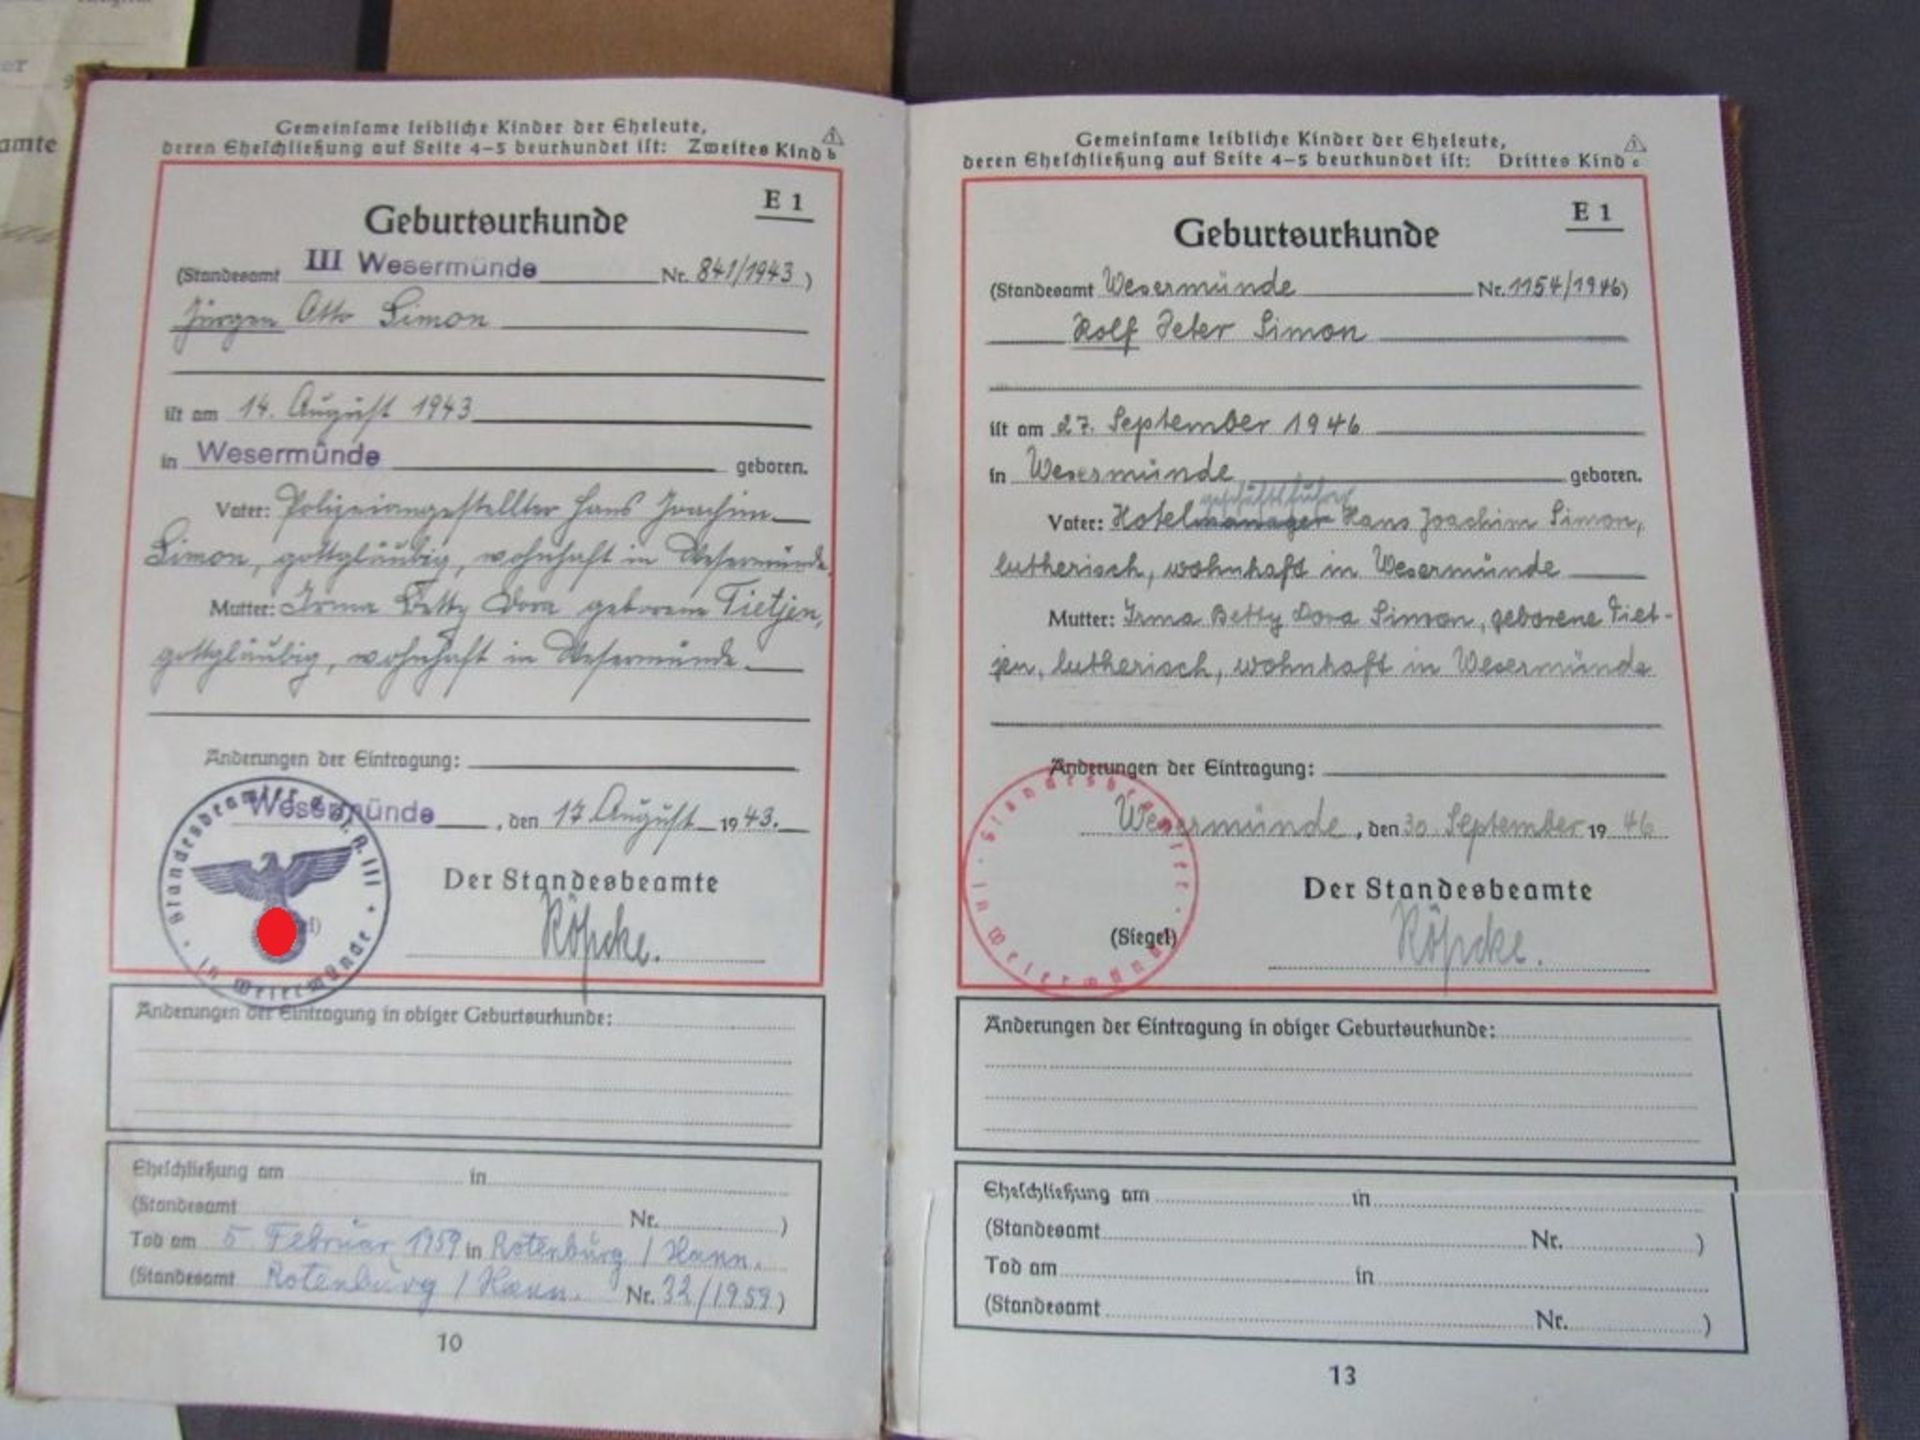 amte
Gemeinsame leibliche Kinder der Eheleute,
deren Eheschließung auf Seite 4–5 beurkundet ist: Zweites Kind b
E 1
Geburtsurkunde
(Standesamt III Wesermünde Nr. 841/1943)
Jürgen Otto Simon
ist am 14. August 1943
in Wesermünde geboren.
Vater: Polizeiangestellter Hans Joachim
Simon, gottgläubig, wohnhaft in Wesermünde,
Mutter: Irma Betty Dora geborene Tietjen,
gottgläubig, wohnhaft in Wesermünde.
Änderungen der Eintragung:
Wesermünde, den 17. August 1943.
Der Standesbeamte
Röpcke.
Standesbeamter
III
in Wesermünde
Änderungen der Eintragung in obiger Geburtsurkunde:
Eheschließung am in
(Standesamt Nr. )
Tod am 5. Februar 1959 in Rotenburg / Hann.
(Standesamt Rotenburg / Hann. Nr. 32/1959)
10
Gemeinsame leibliche Kinder der Eheleute,
deren Eheschließung auf Seite 4–5 beurkundet ist: Drittes Kind c
E 1
Geburtsurkunde
(Standesamt Wesermünde Nr. 1154/1946)
Rolf Peter Simon
ist am 27. September 1946
in Wesermünde geboren.
geschäftsführer
Vater: Hotelmanager Hans Joachim Simon,
lutherisch, wohnhaft in Wesermünde
Mutter: Irma Betty Dora Simon, geborene Tiet-
jen, lutherisch, wohnhaft in Wesermünde
Änderungen der Eintragung:
Wesermünde, den 30. September 1946
Der Standesbeamte
(Siegel)
Röpcke.
Standesbeamter
in Wesermünde
Änderungen der Eintragung in obiger Geburtsurkunde:
Eheschließung am in
(Standesamt Nr. )
Tod am in
(Standesamt Nr. )
13